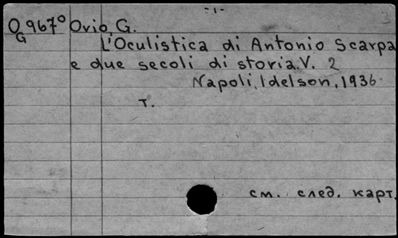 -1-
O 967° Ovio, G.
G L'Oculistica di Antonio Scarpa
e due secoli di storia. V. 2
Napoli, Idelson, 1936
т.
см. след. карт.